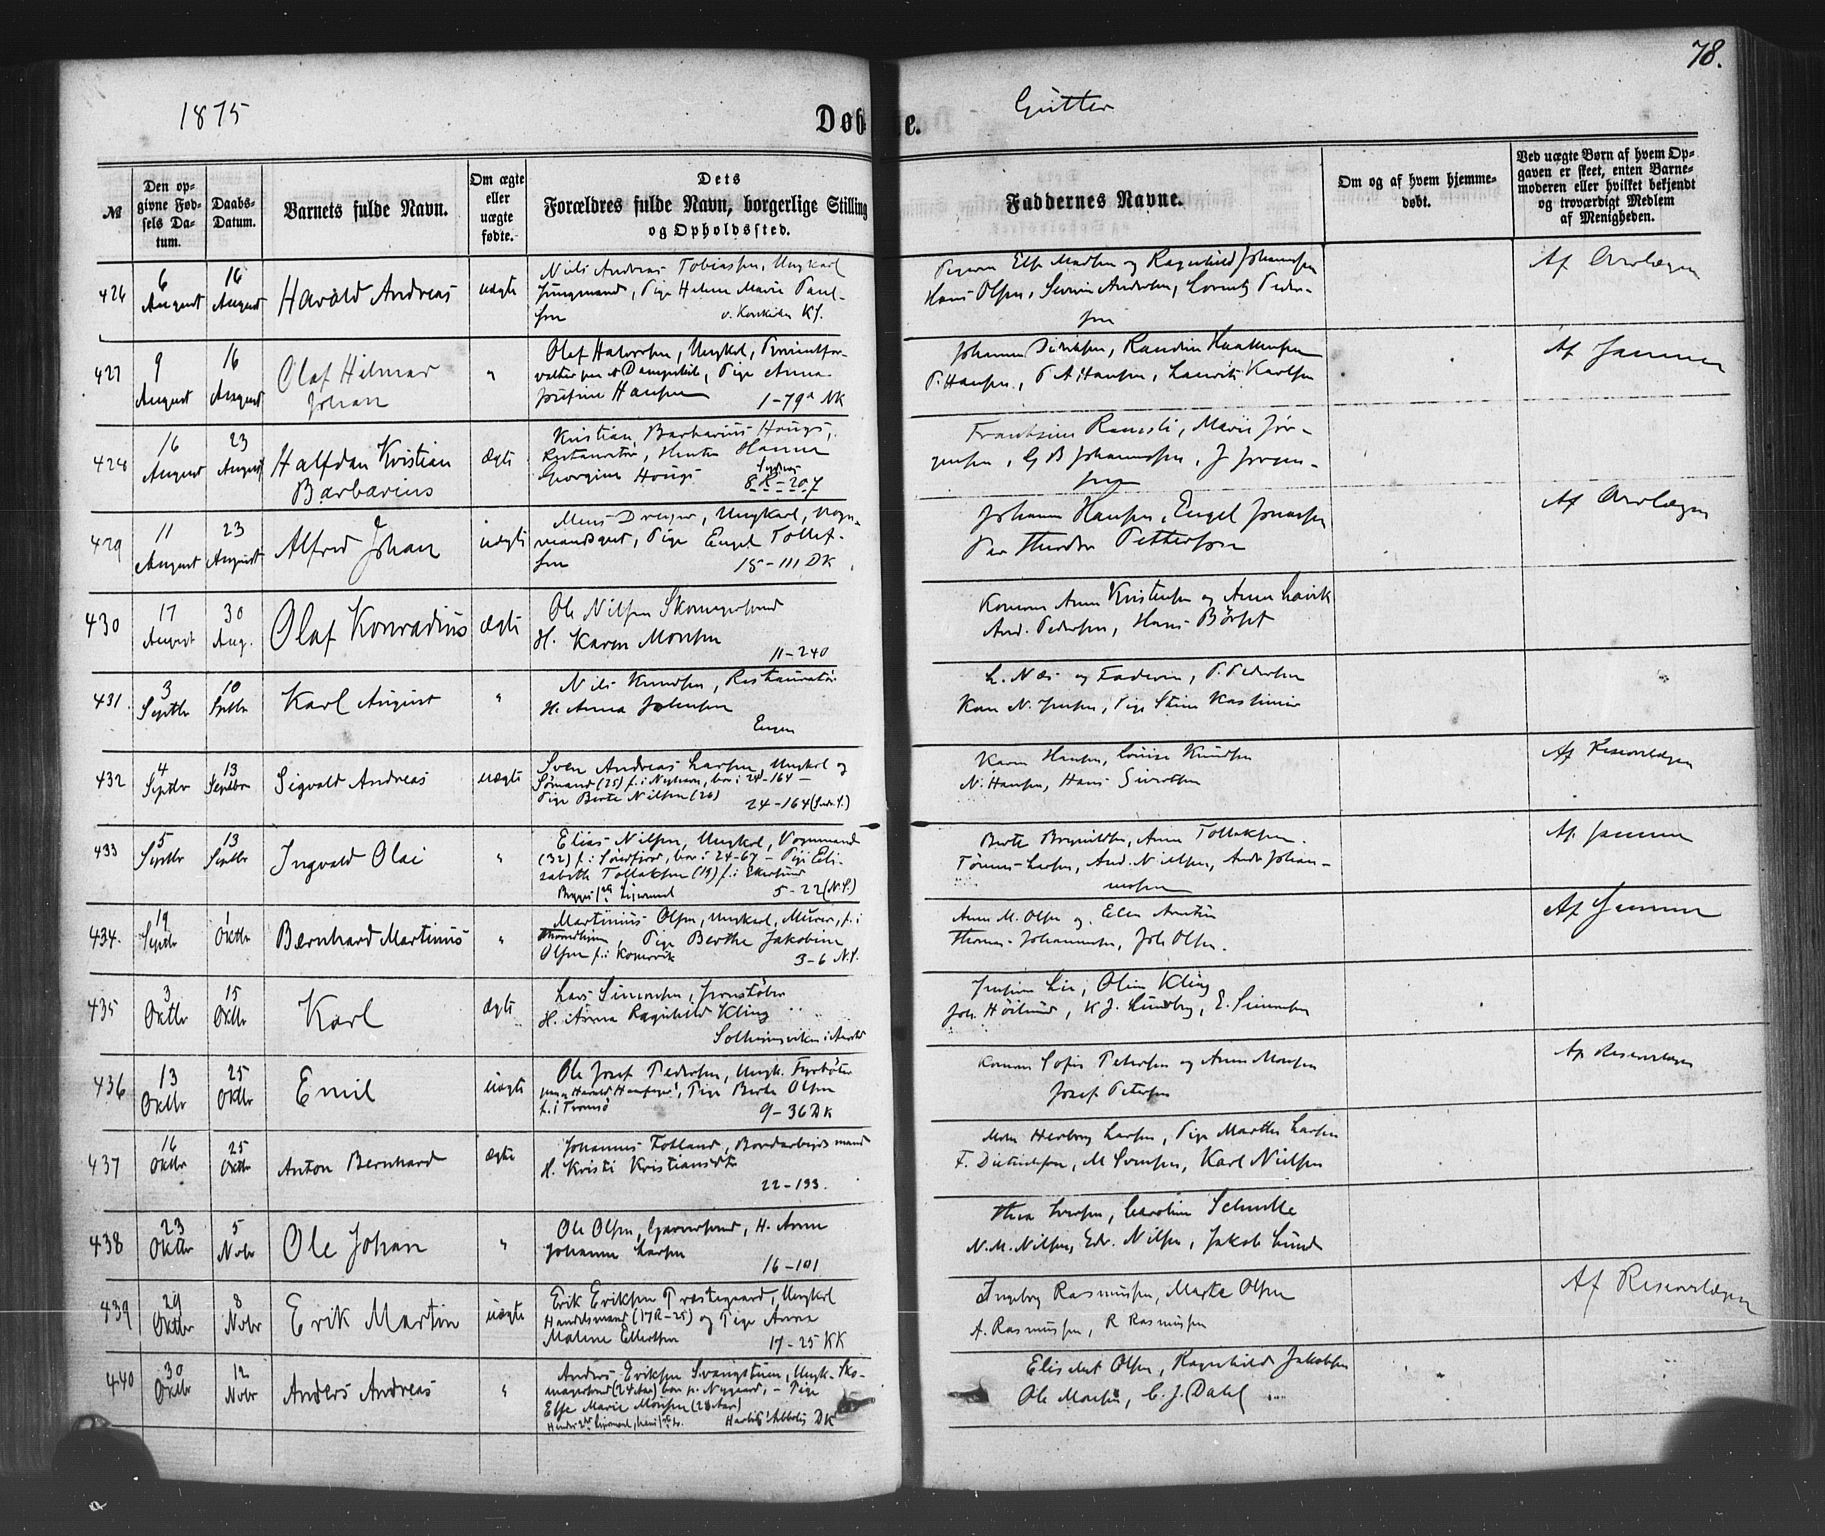 78.
1875
Døbte.
Gutter
№
Den opgivne Fødsels Datum.
Daabs-Datum.
Barnets fulde Navn.
Om ægte eller uægte fødte.
Dets Forældres fulde Navn, borgerlige Stilling og Opholdssted.
Faddernes Navne.
Om og af hvem hjemmedøbt.
Ved uægte Børn af hvem Opgaven er skeet, enten Barnemoderen eller hvilket bekjendt og troværdigt Medlem af Menigheden.
426 6 August 16 August Harald Andreas uægte
Niels Andreas Tobiassen, Ungkarl
Jungmand, Pige Helene Marie Paul-
sen v. Korskirken KS.
Pigerne Else Madsen og Ragnhild Johannsen
Hans Olsen, Severin Andersen, Lorentz Peder-
sen
427 9 August 16 August Olaf Hilmar
Johan "
Olaf Halvorsen, Ungkrl, Proviantfor-
valter paa et Dampskib, Pige Anna
Josefine Hansen 1-79a NK
P. Hansen, P A Hansen, Lauritz Karlsen
428 16 August 23 August Halfdan Kristian
Barbarius ægte
Kristian Barbarius Hougs,
Restauratør, Hustru Hanna
Georgine Hougs 8 R-207
Marie Jør-
gensen, G B Johannessen, J Jørgen-
sen
429 11 August 23 August Alfred Johan uægte
Mens Dreyer, Ungkarl, Vogn-
mandsgut, Pige Engel Tollef-
sen 15-111 DK
Johanne Hansen, Engel Jonassen
Per Theodor Pettersen
430 17 August 30 Aug. Olaf Konradius ægte
Ole Nilsen Skomagersvend
H. Karen Monsen
11-240
Konerne Anna Kristensen og Anna Lavik
And. Pedersen, Hans Børset
431. 3 Septbr 10 Septbr Karl August "
Nils Knudsen, Restauratør
H. Anna Johnsen
Engen
L. Næs og Faderen, P. Pedersen
Kone N. Jensen, Pige Stine Kasimir
432 4 Septbr 13 Septbr Sigvald Andreas uægte
Sven Andreas Larsen, Ungkrl og
Sømand (25) f. i Nyhavn, bor i 24-164 -
Pige Berte Nilsen (26) 24-164
Karen Hansen, Louise Knudsen
N. Hansen, Hans Sivertsen
Af Reservelægen
433 5 Septbr 13 Septbr Ingvald Olai "
Elias Nilsen, Ungkrl, Vognmand
(32) f. i Søndfjord, bor i 24-67 - Pige Eli-
sabeth Tollaksen (19) f. i Ekersund
5-22 (N.S.)
Berte Brynildsen, Anna Tollaksen
Tønnes Larsen, And. Nilsen, Andr Johan-
nesen
Af Samme
434. 19 Septbr 1 Oktbr Bernhard Martinus "
Martinius Olsen, Ungkarl, Murer, f. i
Throndhjem, Pige Berthe Jakobine
Olsen f. i Kopervik 3-6 N.S.
Anne M. Olsen og Elen
Thomas Johannesen, Joh Olsen.
Af Samme
435 3 Oktbr 15 Oktbr Karl ægte
Lars Simonsen, Jernstøber
H. Anna Ragnhild Kling
Solheimsviken i Aarstad
Josefine Lie, Oline Kling
Joh. Høilund, K J. Lundberg, E. Simonsen
436 13 Oktbr 25 Oktbr Emil uægte
Ole Josef Pedersen, Ungk. Fyrbøter
paa "Harald Haarfager", Pige Berte Olsen
f. i Tromsø 9-36 DK
Konerne Sofie Petersen og Anna Monsen
Josef Petersen
Af Reservelægen
437 16 Oktbr 25 Oktbr Anton Bernhard ægte
Johannes Totland, Bordarbeidsmand
H. Kristi Kristiansdtr
22-133.
Herborg Larsen, Pige Marthe Larsen
M Svensen, Karl Nilsen
438 23 Oktbr 5 Novbr Ole Johan "
Ole Olsen, Garversvend, H. Anne
Johanne Larsen
16-101
Thea Iversen, Caroline Schulte
N. M. Nilsen, Edv. Nilsen, Jakob Lund
439 29 Oktbr 8 Novbr Erik Martin uægte
Erik Eriksen Præstegaard, Ungkrl
Handelsmand (17R-25) og Pige Anna
Malene Ellertsen 17-25 KK
Ingeborg Rasmussen, Marte Olsen
A. Rasmussen, R Rasmussen
Af Reservelægen
440 30 Oktbr 12 Novbr Anders Andreas "
Anders Eriksen Svangstuen, Ungk. Sko-
magersvend (24 Aar) bor p. Nygaard, - Pige
Else Marie Monsen (28 Aar)
DK
Elisabet Olsen, Ragnhild Jakobsen
Ole Monsen, C. J. Dahl